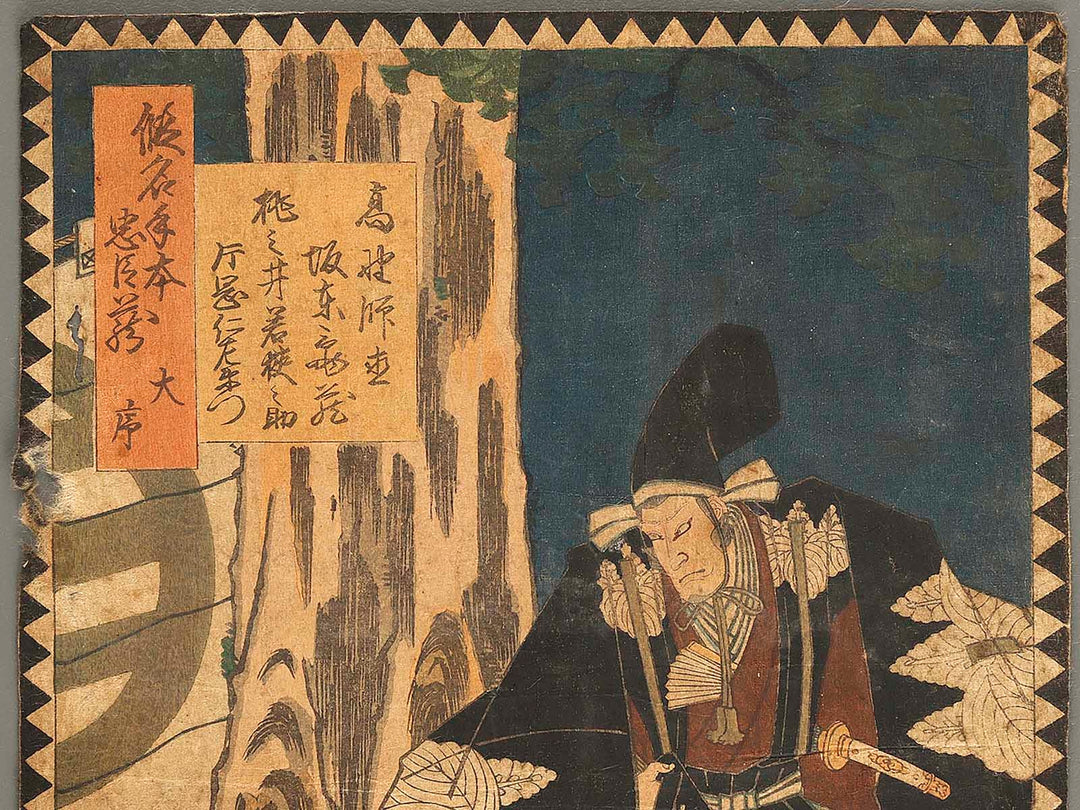 仮名手本
忠臣蔵
大
序
高野師直
坂東三亀蔵
桃之井若狭之助
片岡仁左衛門